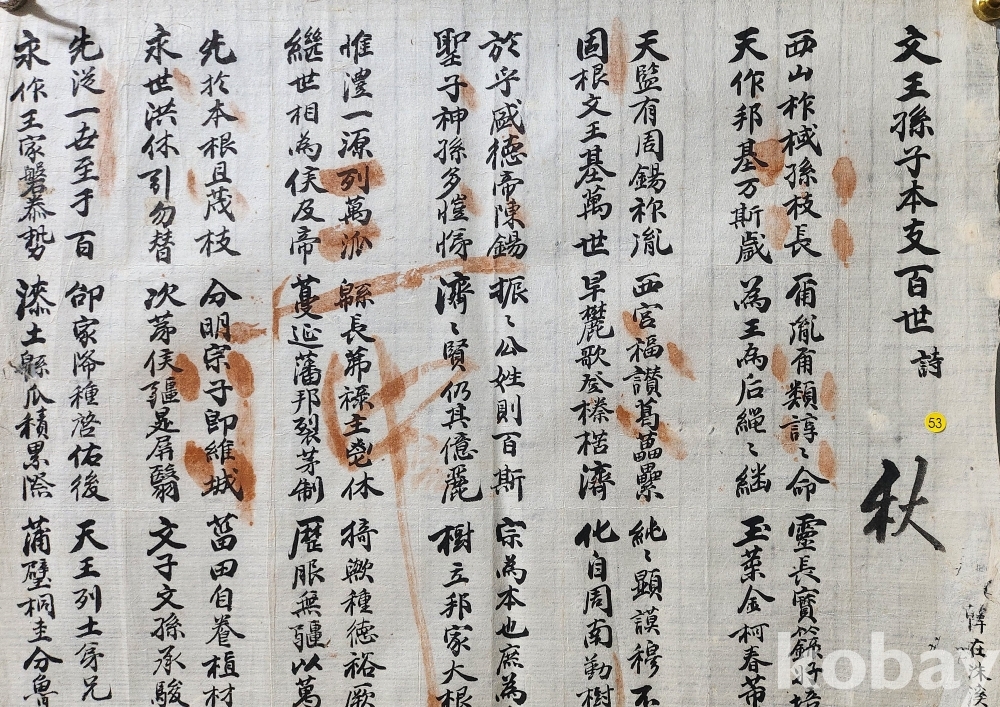 文王孫子本支百世 詩
53
秋
西山柞棫孫枝長 爾胤爾類諄〻命 靈長寶籙好培
天作邦基万斯歲 為王為后繩〻繼 玉葉金柯春蒂
天監有周錫祚胤 西宮福讚葛藟纍 純〻顯謨穆不
固根文王基萬世 早麓歌登榛楛濟 化自周南勤樹
於乎盛德帝陳錫 振〻公姓則百斯 宗為本也庶為
聖子神孫多愷悌 濟〻賢仍其億麗 樹立邦家大根
惟澧一源列萬派 緜長茀祿主鬯休 猗歟種德裕厥
繼世相為侯及帝 蔓延藩邦裂茅制 歷服無疆以萬
先於本根且茂枝 分明宗子即維城 菑田自眷植材
永世洪休引勿替 次第侯疆是屏翳 文子文孫承駿
先從一世至于百 邰家降種啓佑後 天王列土多兄
永作王家磐泰勢 漆土緜瓜積累際 蒲璧桐圭分魯
kobay